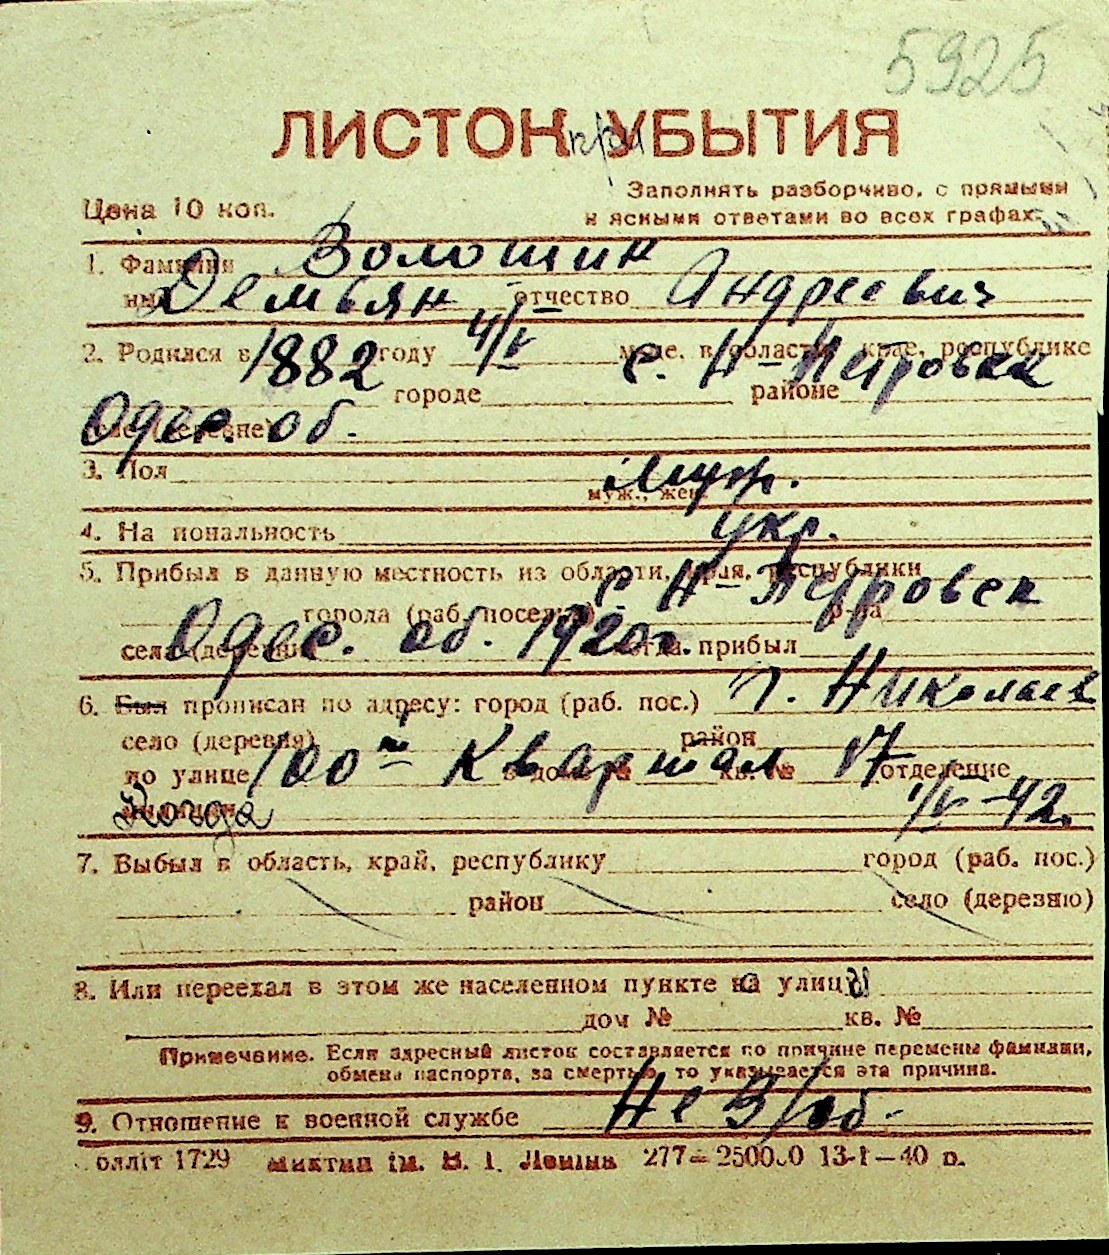 5925
ЛИСТОК при УБЫТИЯ
Заполнять разборчиво, с прямыми
Цена 10 коп.
и ясными ответами во всех графах.
1. Фамилия Волошин
имя Демьян отчество Андреевич
2. Родился в 1882 году 4/V м-це, в области, крае, республике
с. Н-Петровка
городе районе
Одес. об.
селе (деревне)
3. Пол Муж.
муж., жен.
4. На иональность укр.
5. Прибыл в данную местность из области, края, республики
с. Н-Петровск
города (раб. поселка) р-на
села (деревни) Одес. об. 1920 г. когда прибыл
6. Был прописан по адресу: город (раб. пос.) г. Николаев
село (деревня) район
по улице 100й Квартал в доме № кв. № 17 отделение
милиции Когда 1/V-42.
7. Выбыл в область, край, республику город (раб. пос.)
район село (деревню)
8. Или переехал в этом же населенном пункте на улицы
дом № кв. №
Примечание. Если адресный листок составляется по причине перемены фамилии,
обмена паспорта, за смертью, то указывается эта причина.
9. Отношение к военной службе Не В/об.
олліт 1729 ім. В. І. Леніна 277-250000 13-І-40 р.